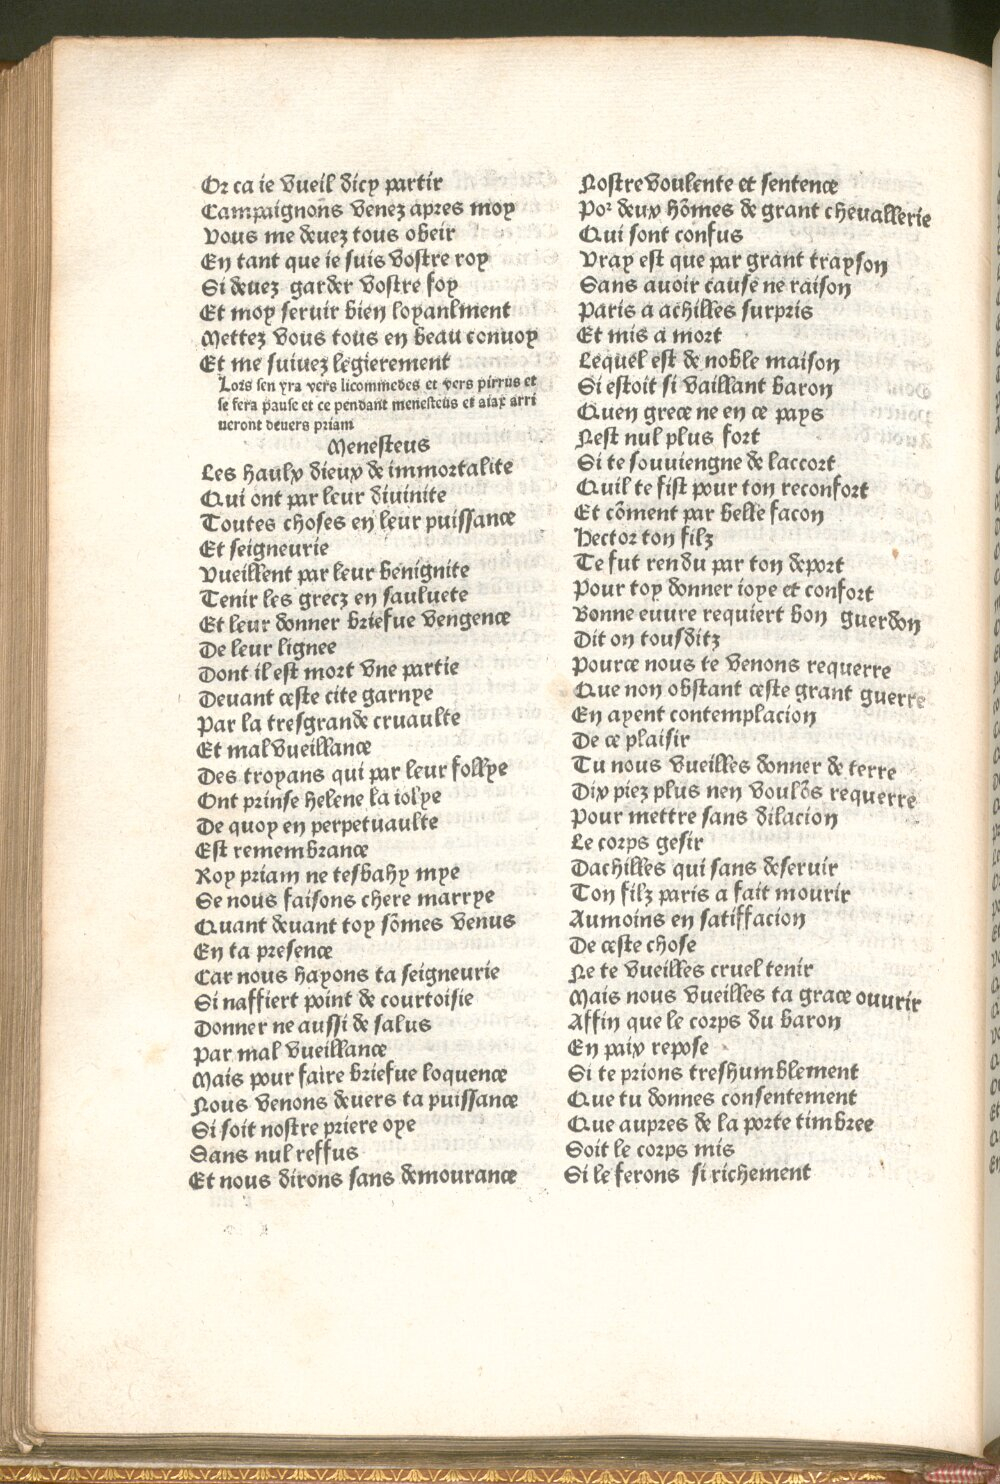 Or ca ie vueil dicy partir
Campaignons venez apres moy
Vous me deuez tous obeir
En tant que ie suis vostre roy
Si deuez garder vostre foy
Et moy seruir bien loyanlment
Mettez vous tous en beau conuoy
Et me suiuez legierement
Lors sen yra vers licommedes et vers pirrus et
se fera pause et ce pendant menesteus et aiax arri
ueront deuers priam
Menesteus
Les haulx dieux de immortalite
Qui ont par leur diuinite
Toutes choses en leur puissance
Et seigneurie
Vueillent par leur benignite
Tenir les grecz en sauluete
Et leur donner briefue vengence
De leur lignee
Dont il est mort vne partie
Deuant ceste cite garnye
Par la tresgrande cruaulte
Et mal vueillance
Des troyans qui par leur follye
Ont prinse helene la iolye
De quoy en perpetuaulte
Est remembrance
Roy priam ne tesbahy mye
Se nous faisons chere marrye
Quant deuant toy sõmes venus
En ta presence
Car nous hayons ta seigneurie
Si naffiert point de courtoisie
Donner ne aussi de salus
Par mal vueillance
Mais pour faire briefue loquence
Nous venons deuers ta puissance
Si soit nostre priere oye
Sans nul reffus
Et nous dirons sans demourance
Nostre voulente et sentence
Poꝛ deux hõmes de grant cheuallerie
Qui sont confus
Vray est que par grant trayson
Sans auoir cause ne raison
Paris a achilles surpris
Et mis a mort
Lequel est de noble maison
Si estoit si vaillant baron
Quen grece ne en ce pays
Nest nul plus fort
Si te souuiengne de laccort
Quil te fist pour ton reconfort
Et cõment par belle facon
Hector ton filz
Te fut rendu par ton deport
Pour toy donner ioye et confort
Bonne euure requiert bon guerdon
Dit on tousditz
Pource nous te venons requerre
Que non obstant ceste grant guerre
En ayent contemplacion
De ce plaisir
Tu nous vueilles donner de terre
Dix piez plus nen voulõs requerre
Pour mettre sans dilacion
Le corps gesir
Dachilles qui sans deseruir
Ton filz paris a fait mourir
Aumoins en satiffacion
De ceste chose
Ne te vueilles cruel tenir
Mais nous vueilles ta grace ouurir
Affin que le corps du baron
En paix repose
Si te prions treshumblement
Que tu donnes consentement
Que aupres de la porte timbree
Soit le corps mis
Si le ferons si richement